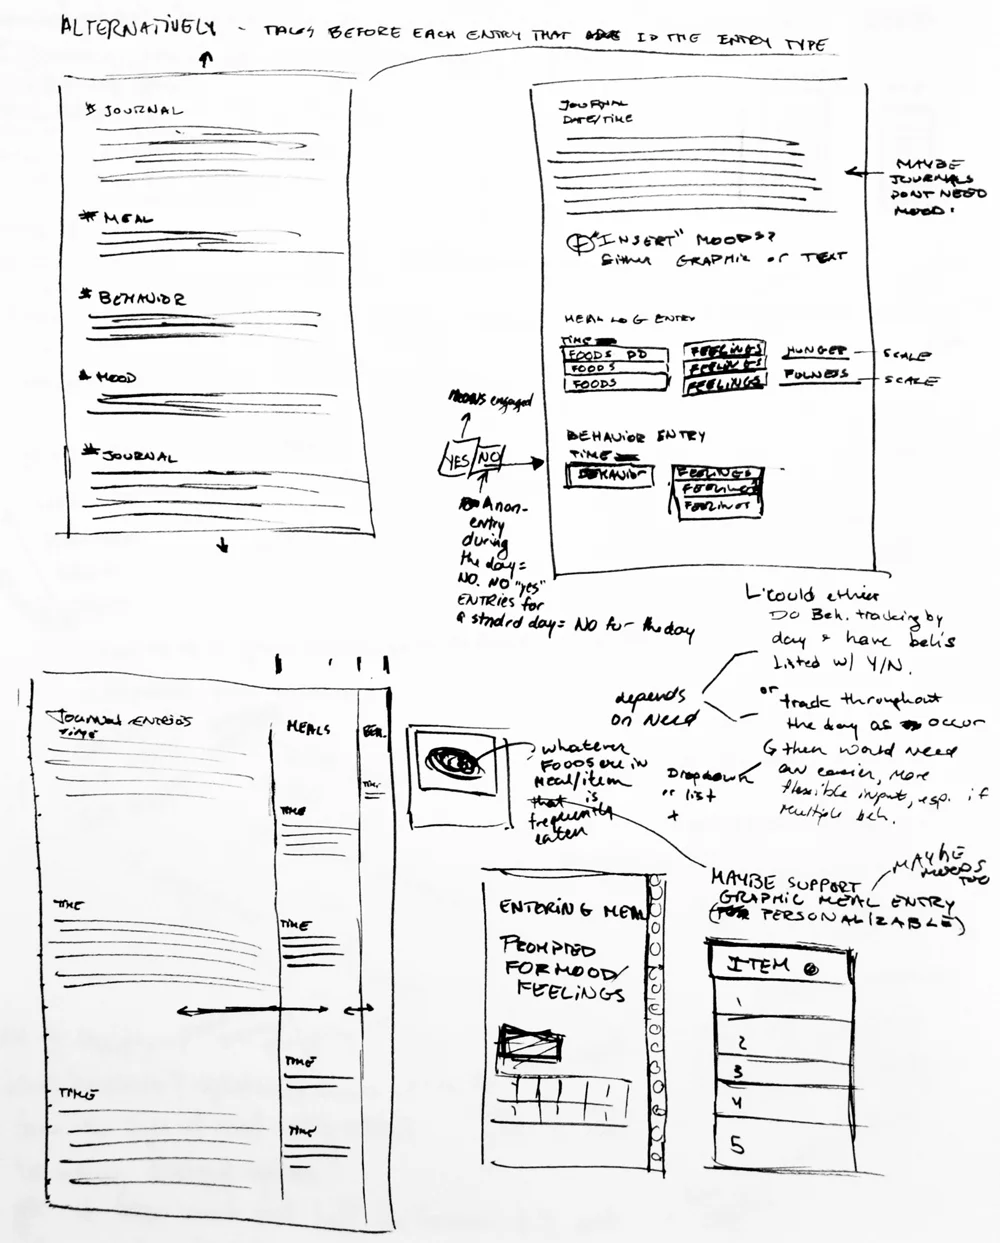 ALTERNATIVELY - TAGS BEFORE EACH ENTRY THAT IS THE ENTRY TYPE
* JOURNAL
* MEAL
* BEHAVIOR
* MOOD
* JOURNAL
JOURNAL
DATE/TIME
MAYBE
JOURNALS
DONT NEED
MOOD.
+ "INSERT" MOODS?
EITHER GRAPHIC or TEXT
MEAL LOG ENTRY
TIME
FOODS DD
FOODS
FOODS
FEELINGS
FEELINGS
FEELINGS
HUNGER
SCALE
FULNESS
SCALE
BEHAVIOR ENTRY
TIME
BEHAVIOR
FEELINGS
FEELINGS
FEELINGS
MEANS engaged
YES
NO
A non-
entry
during
the day =
NO. NO "yes"
ENTRIES for
a stndrd day = NO for the day
L could either
DO Beh. tracking by
day & have beh's
Listed w/ Y/N.
depends
on NEED
or
track throughout
the day as occur
then would need
an easier, more
flexible input, esp. if
Multiple beh.
Dropdown
or list
+
JOURNAL ENTRIES
TIME
TIME
TIME
MEALS
TIME
TIME
TIME
TIME
BEH.
TIME
whatever
FOODS are in
meal/item
that is
frequently
eaten
MAYBE SUPPORT
GRAPHIC MEAL ENTRY
(PERSONALIZABLE)
MAYBE
MOODS
TOO
ENTERING MEAL
PROMPTED
FOR MOOD/
FEELINGS
ITEM
1
2
3
4
5